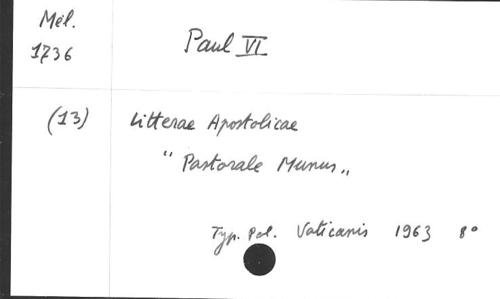 Mél.
1736
Paul VI
(13) Litterae Apostolicae
" Pastorale Munus „
Typ. Pol. Vaticanis 1963 8°